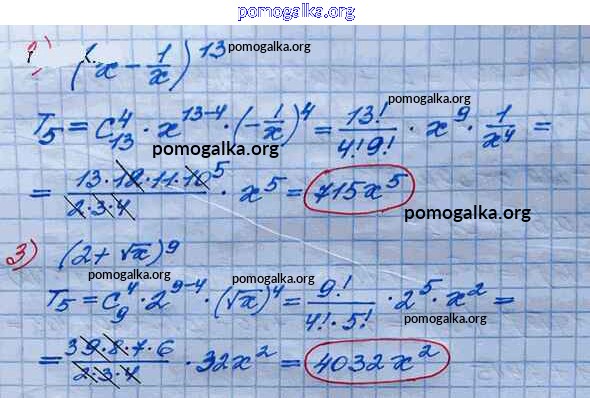 pomogalka.org
2) (x - 1/x)^13 pomogalka.org
pomogalka.org
T_5 = C_13^4 · x^(13-4) · (-1/x)^4 = 13!/(4!9!) · x^9 · 1/x^4 =
pomogalka.org
= (13·12·11·10^5)/(2·3·4) · x^5 = 715x^5
pomogalka.org
3) (2 + √x)^9
pomogalka.org pomogalka.org
T_5 = C_9^4 · 2^(9-4) · (√x)^4 = 9!/(4!·5!) · 2^5 · x^2 =
pomogalka.org
= (3 9·8·7·6)/(2·3·4) · 32x^2 = 4032x^2